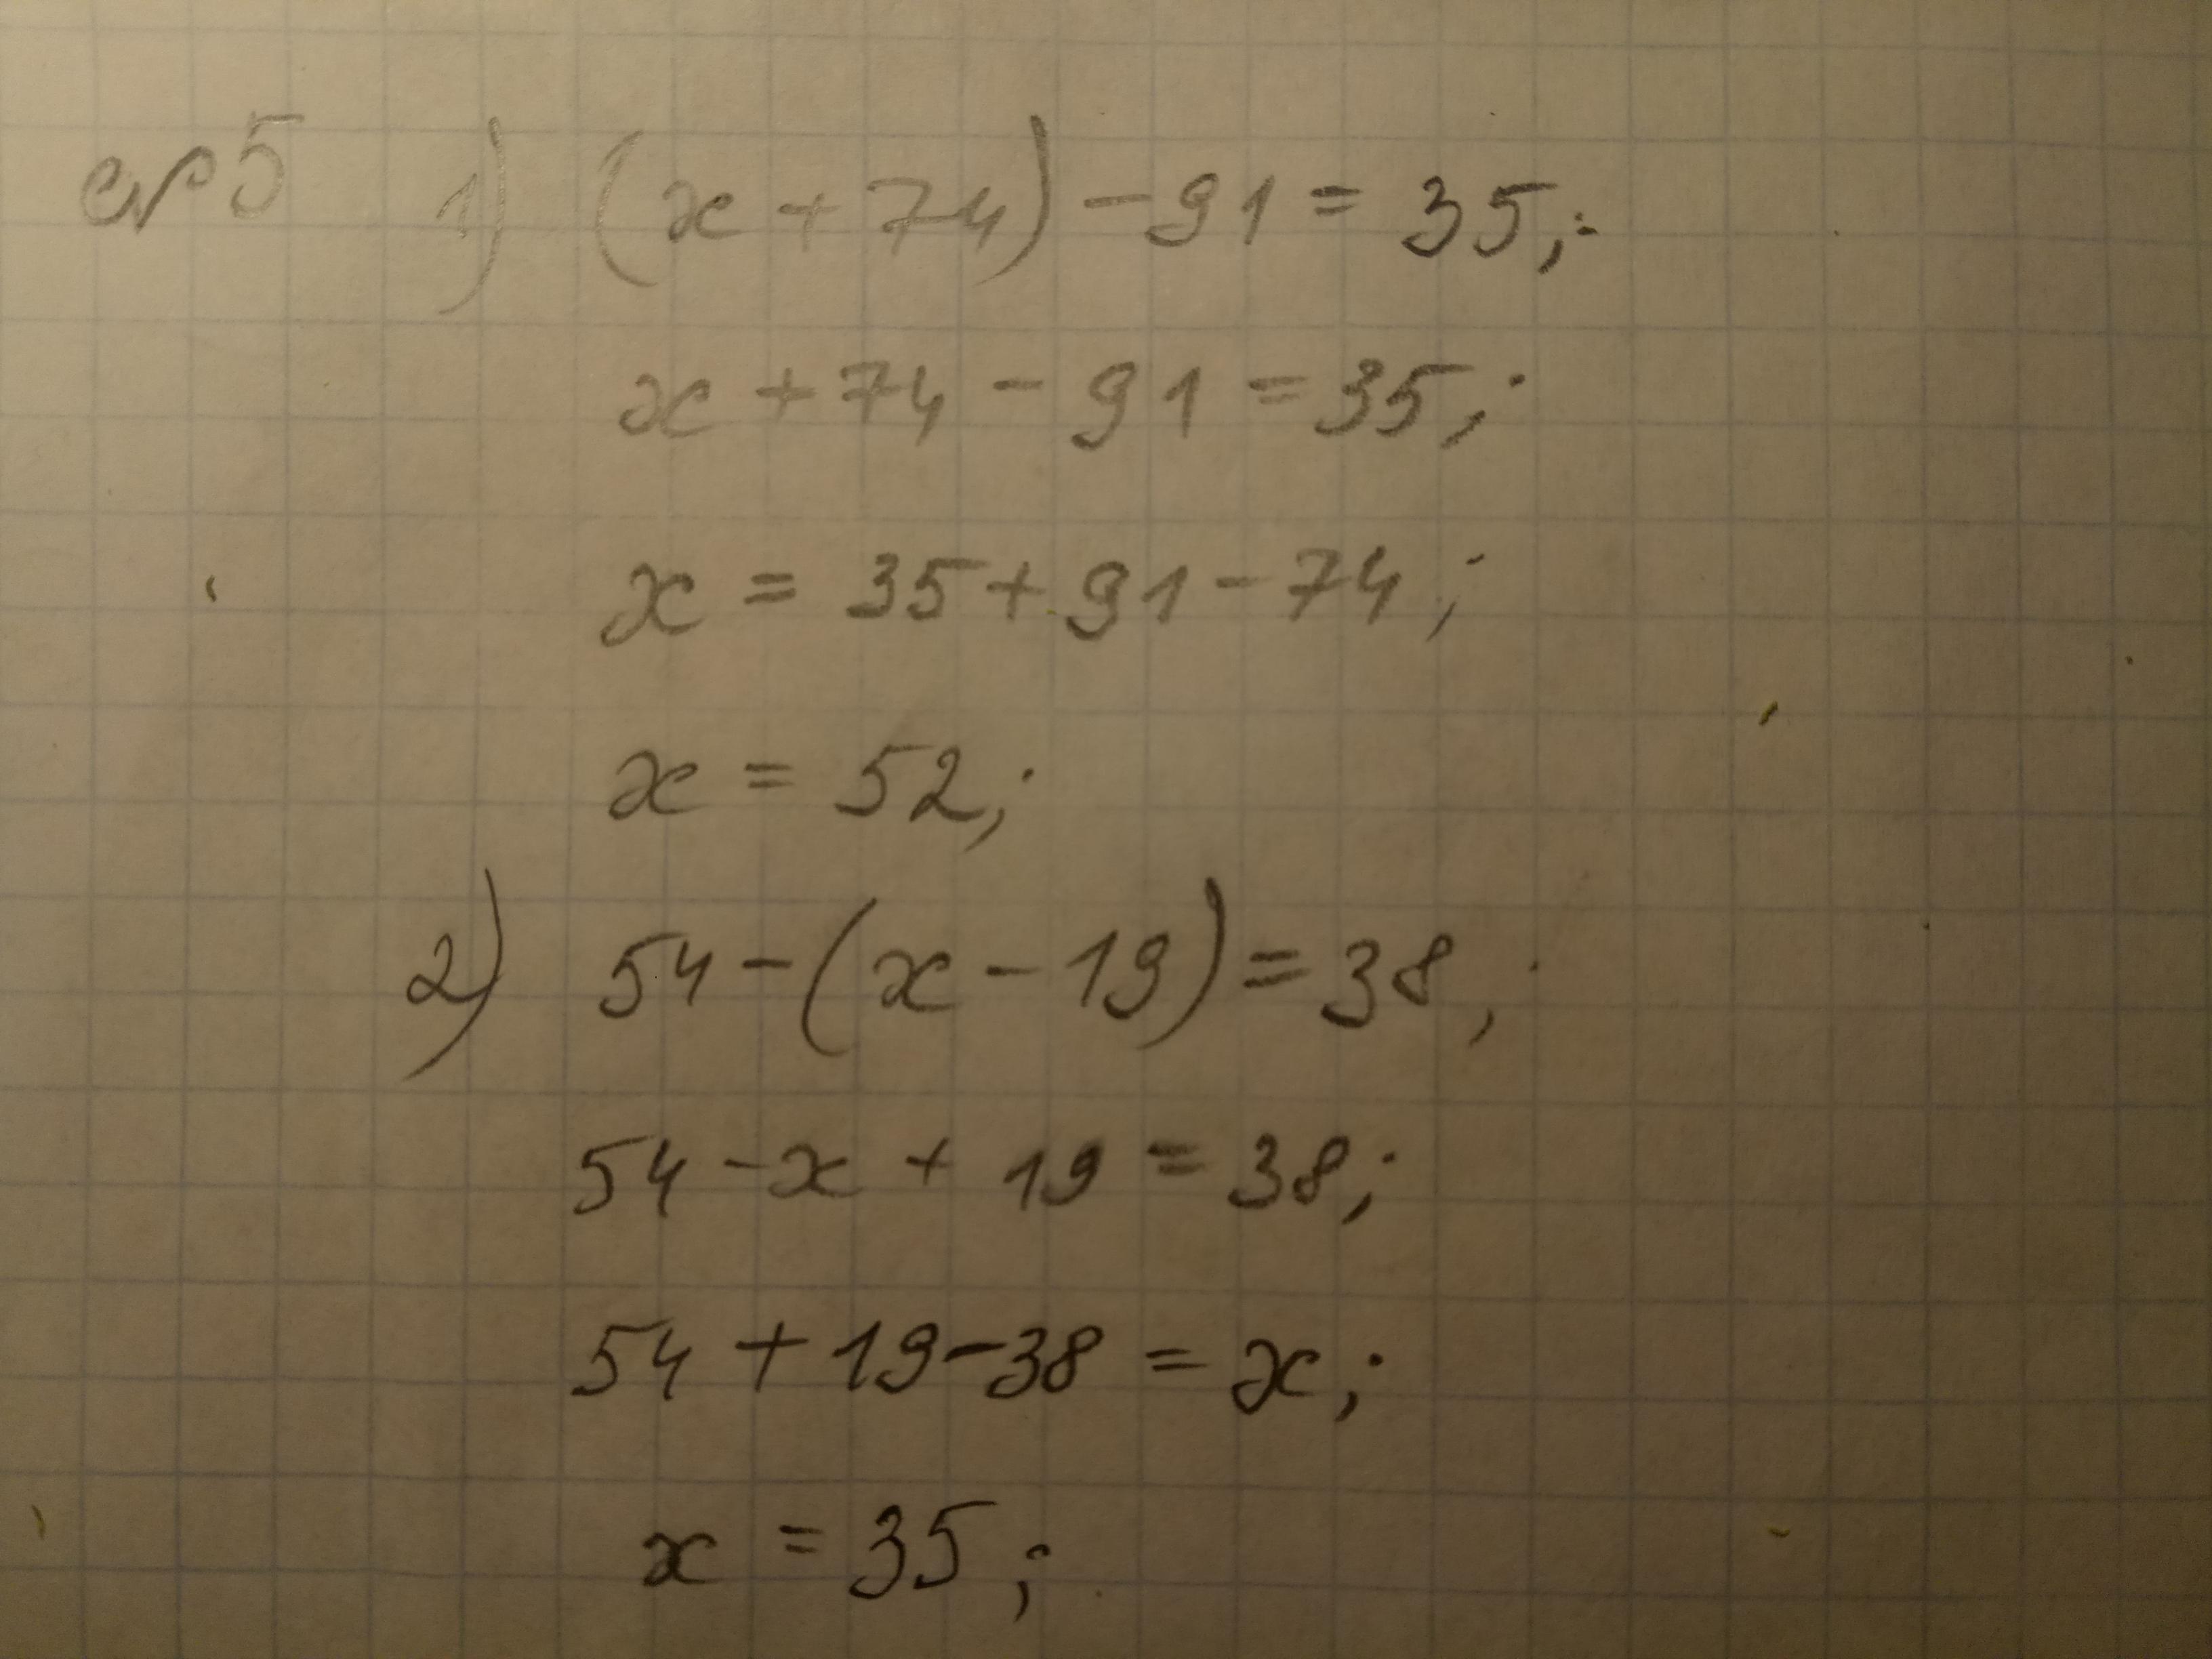 №5 1) (x + 74) - 91 = 35;
x + 74 - 91 = 35;
x = 35 + 91 - 74;
x = 52;
2) 54 - (x - 19) = 38;
54 - x + 19 = 38;
54 + 19 - 38 = x;
x = 35;